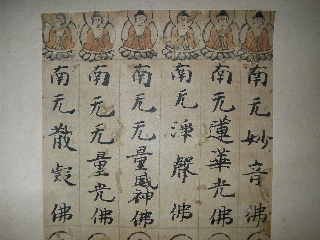 南无妙音佛
南无蓮華光佛
南无淨聲佛
南无无量威神佛
南无无量光佛
南无散疑佛